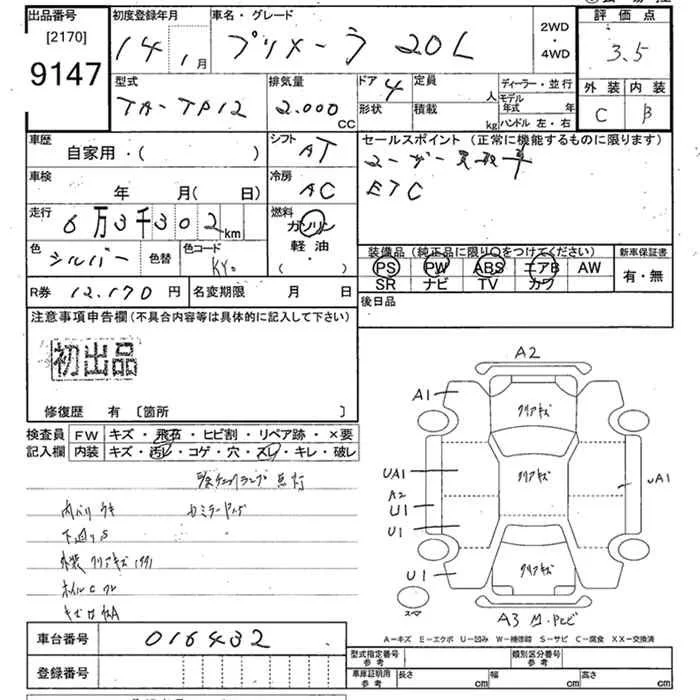 出品番号 初度登録年月 車名・グレード 2WD・4WD 評価点
[2170]
9147 14年 1月 プリメーラ 20L 3.5
型式 排気量 ドア 4 定員 人 ディーラー・並行 外装 内装
TA-TP12 2.000 CC 形状 積載 kg モデル年式 年 C B
ハンドル 左・右
車歴 シフト AT セールスポイント (正常に機能するものに限ります)
自家用・( ) ユーザー買取車
車検 年 月( 日) 冷房 AC ETC
走行 6万3千302km 燃料 ガソリン
軽油・
( )
色 シルバー 色替 色コード KY0 装備品 (純正品に限り○をつけてください) 新車保証書
PS PW ABS エアB AW 有・無
SR ナビ TV カワ
R券 12.170 円 名変期限 月 日 後日品
注意事項申告欄 (不具合内容等は具体的に記入して下さい)
初出品
修復歴 有 〔箇所 〕
検査員 FW キズ・飛石・ヒビ割・リペア跡・×要
記入欄 内装 キズ・汚レ・コゲ・穴・スレ・キレ・破レ
点灯
内ハリウキ
下廻りS
外装クリアキズ
A2
A1
クリアキズ
UA1
クリアキズ
UA1
A2
U1
U1
クリアキズ
U1
スペア
A3
A-キズ E-エクボ U-凹み W-補修跡 S-サビ C-腐食 XX-交換済
車台番号 016432
登録番号
型式指定番号 参考 類別区分番号 参考
車庫証明用 参考 長さ cm 幅 cm 高さ cm